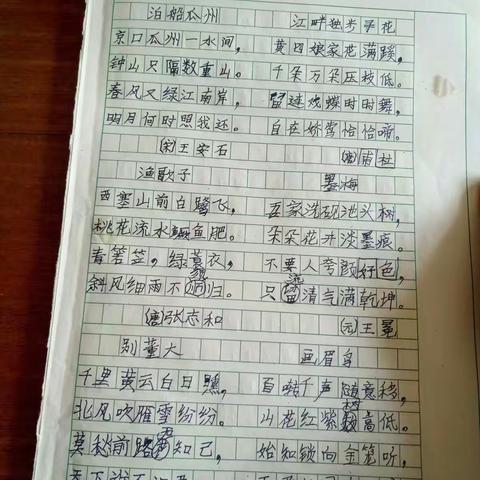 泊船瓜州
京口瓜州一水间，
钟山只隔数重山。
春风又绿江南岸，
明月何时照我还。
(宋)王安石
渔歌子
西塞山前白鹭飞，
桃花流水鳜鱼肥。
青箬笠，绿蓑衣，
斜风细雨不须归。
(唐)张志和
别董大
千里黄云白日曛，
北风吹雁雪纷纷。
莫愁前路知己，
江畔独步寻花
黄四娘家花满蹊，
千朵万朵压枝低。
留连戏蝶时时舞，
自在娇莺恰恰啼。
(唐)甫杜
墨梅
吾家洗砚池头树，
朵朵花开淡墨痕。
不要人夸颜好色，
只留清气满乾坤。
(元)王冕
画眉鸟
百啭千声随意移，
山花红紫树高低。
始知锁向金笼听，